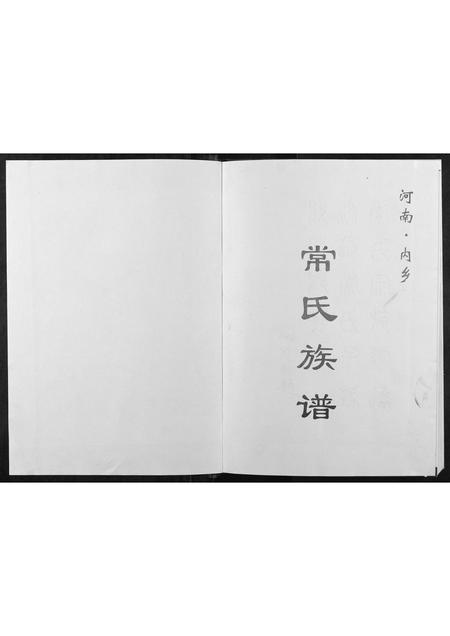 河南·内乡
常氏族谱